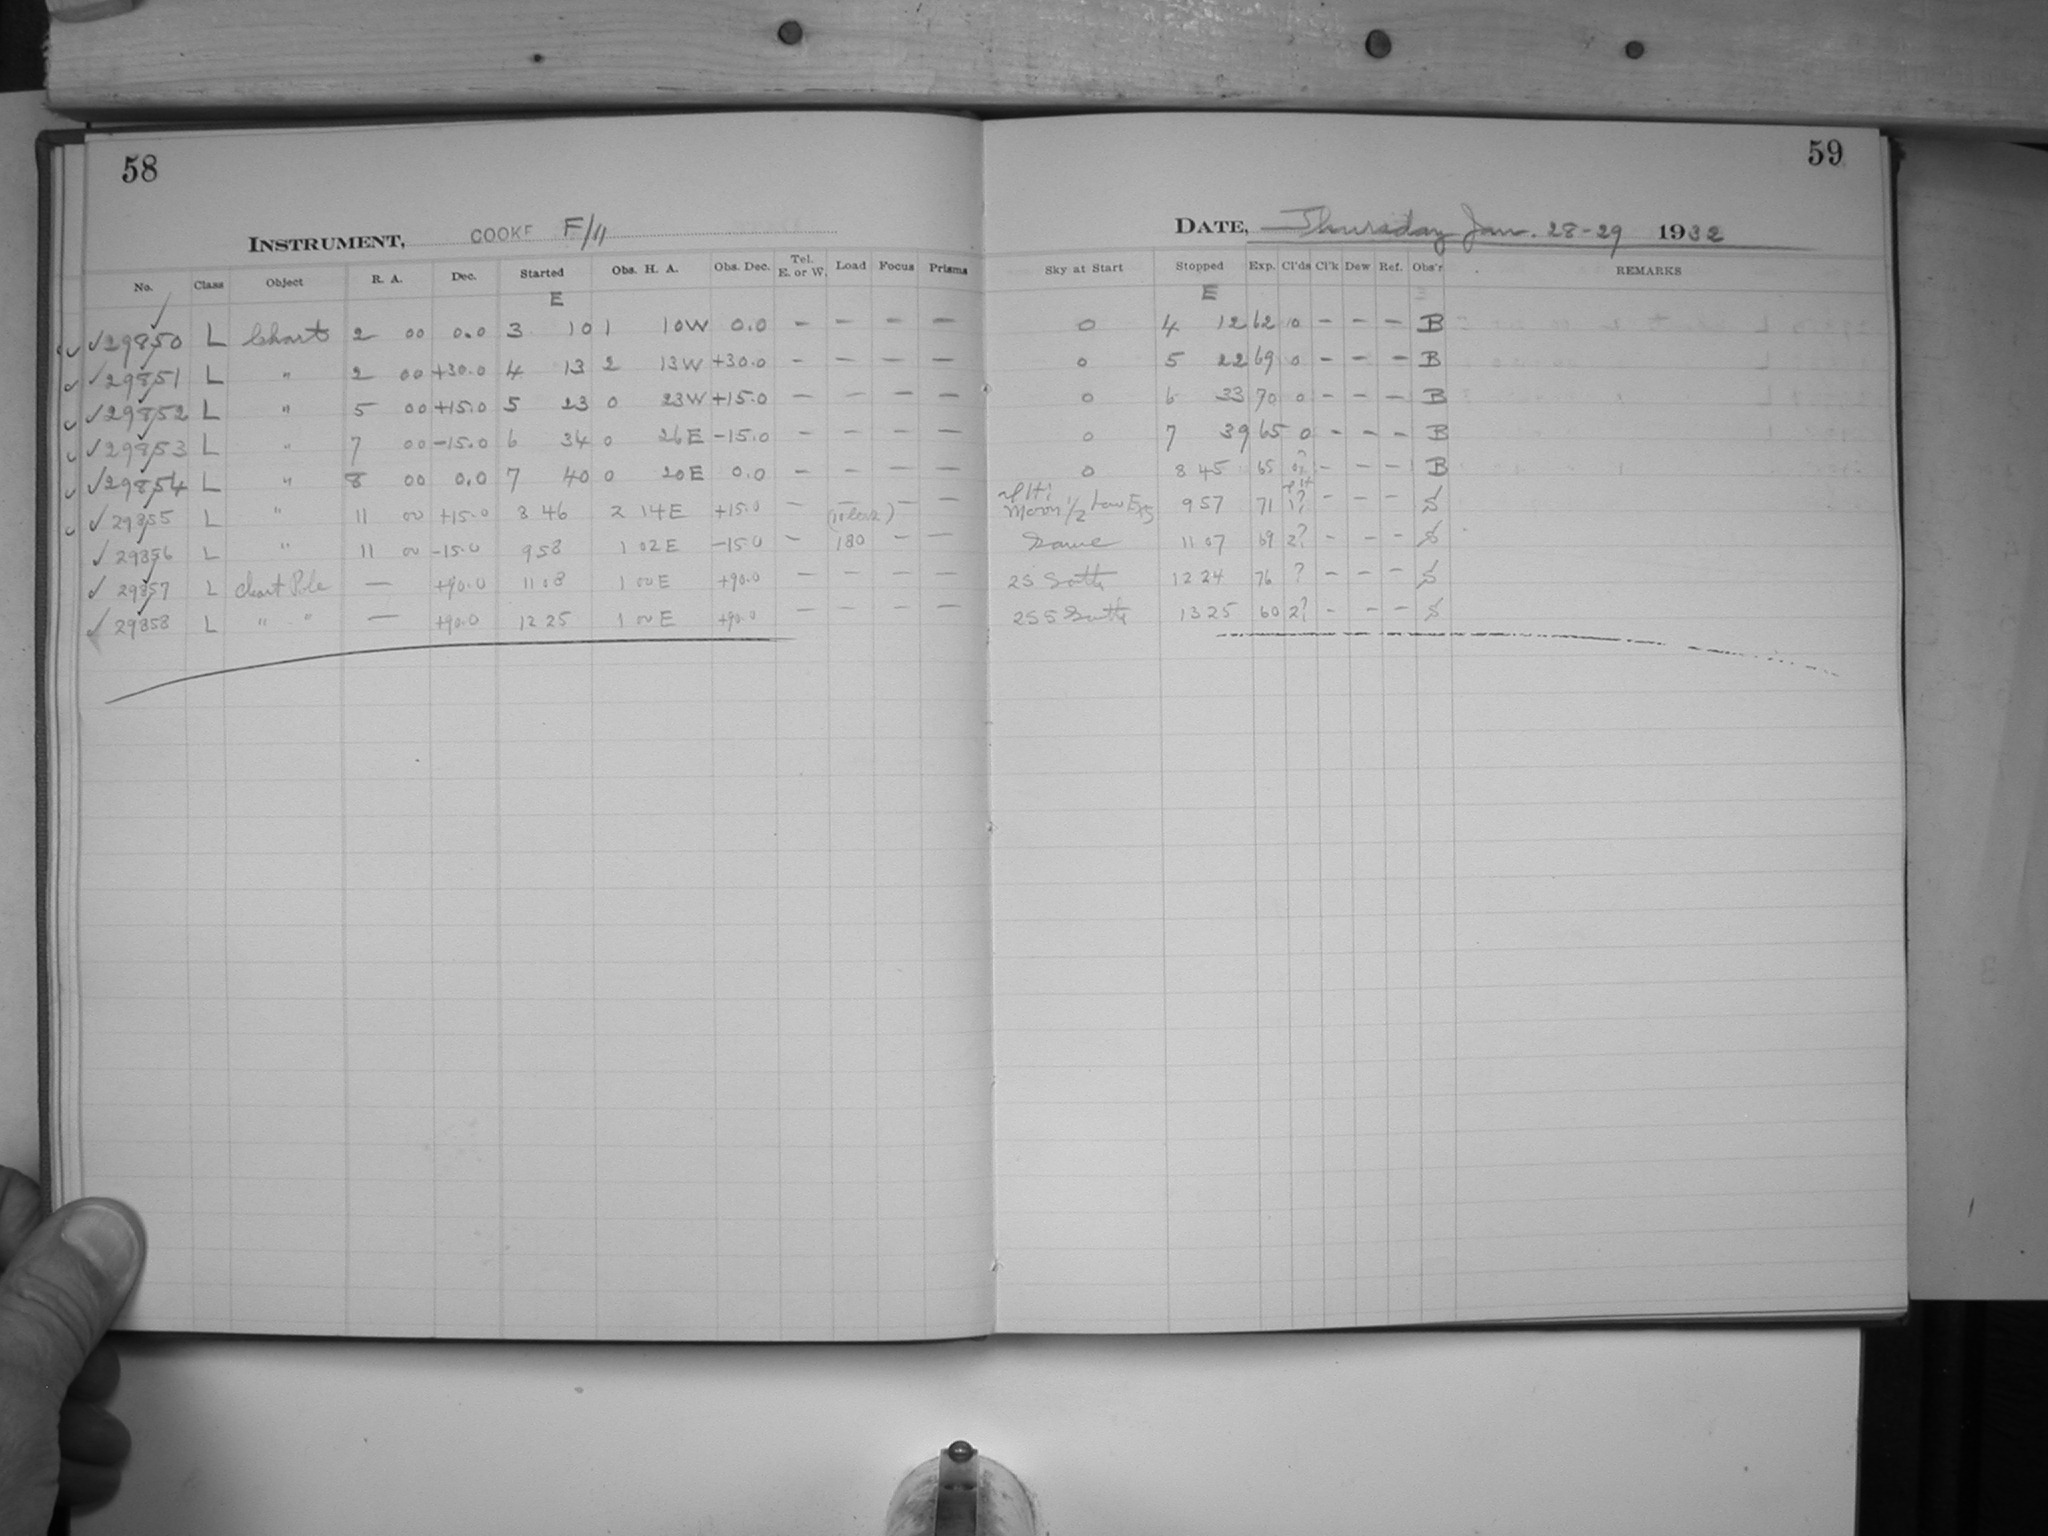 58
INSTRUMENT, COOKE F/11
No. Class Object R. A. Dec. Started Obs. H. A. Obs. Dec. Tel. E. or W. Load Focus Prisms
E
29850 L Chart 2 00 0.0 3 10 1 10W 0.0 – – – –
29851 L " 2 00 +30.0 4 13 2 13W +30.0 – – – –
29852 L " 5 00 +15.0 5 23 0 23W +15.0 – – – –
29853 L " 7 00 -15.0 6 34 0 26E -15.0 – – – –
29854 L " 8 00 0.0 7 40 0 20E 0.0 – – – –
29855 L " 11 00 +15.0 8 46 2 14E +15.0 – – – –
29856 L " 11 00 -15.0 9 58 1 02E -15.0 – 180 – –
29857 L Chart Pole — +90.0 11 08 1 00E +90.0 – – – –
29858 L " " — +90.0 12 25 1 00E +90.0 – – – –
59
DATE, Thursday Jan. 28-29 1932
Sky at Start Stopped Exp. Cl'ds Cl'k Dew Ref. Obs'r REMARKS
E
0 4 12 62 0 – – – B
0 5 22 69 0 – – – B
0 6 33 70 0 – – – B
0 7 39 65 0 – – – B
0 8 45 65 – – – B
Moon 1/2 9 57 71 1? – – – S
Same 11 07 69 2? – – – S
2S 12 24 76 ? – – – S
2S S 13 25 60 2? – – – S